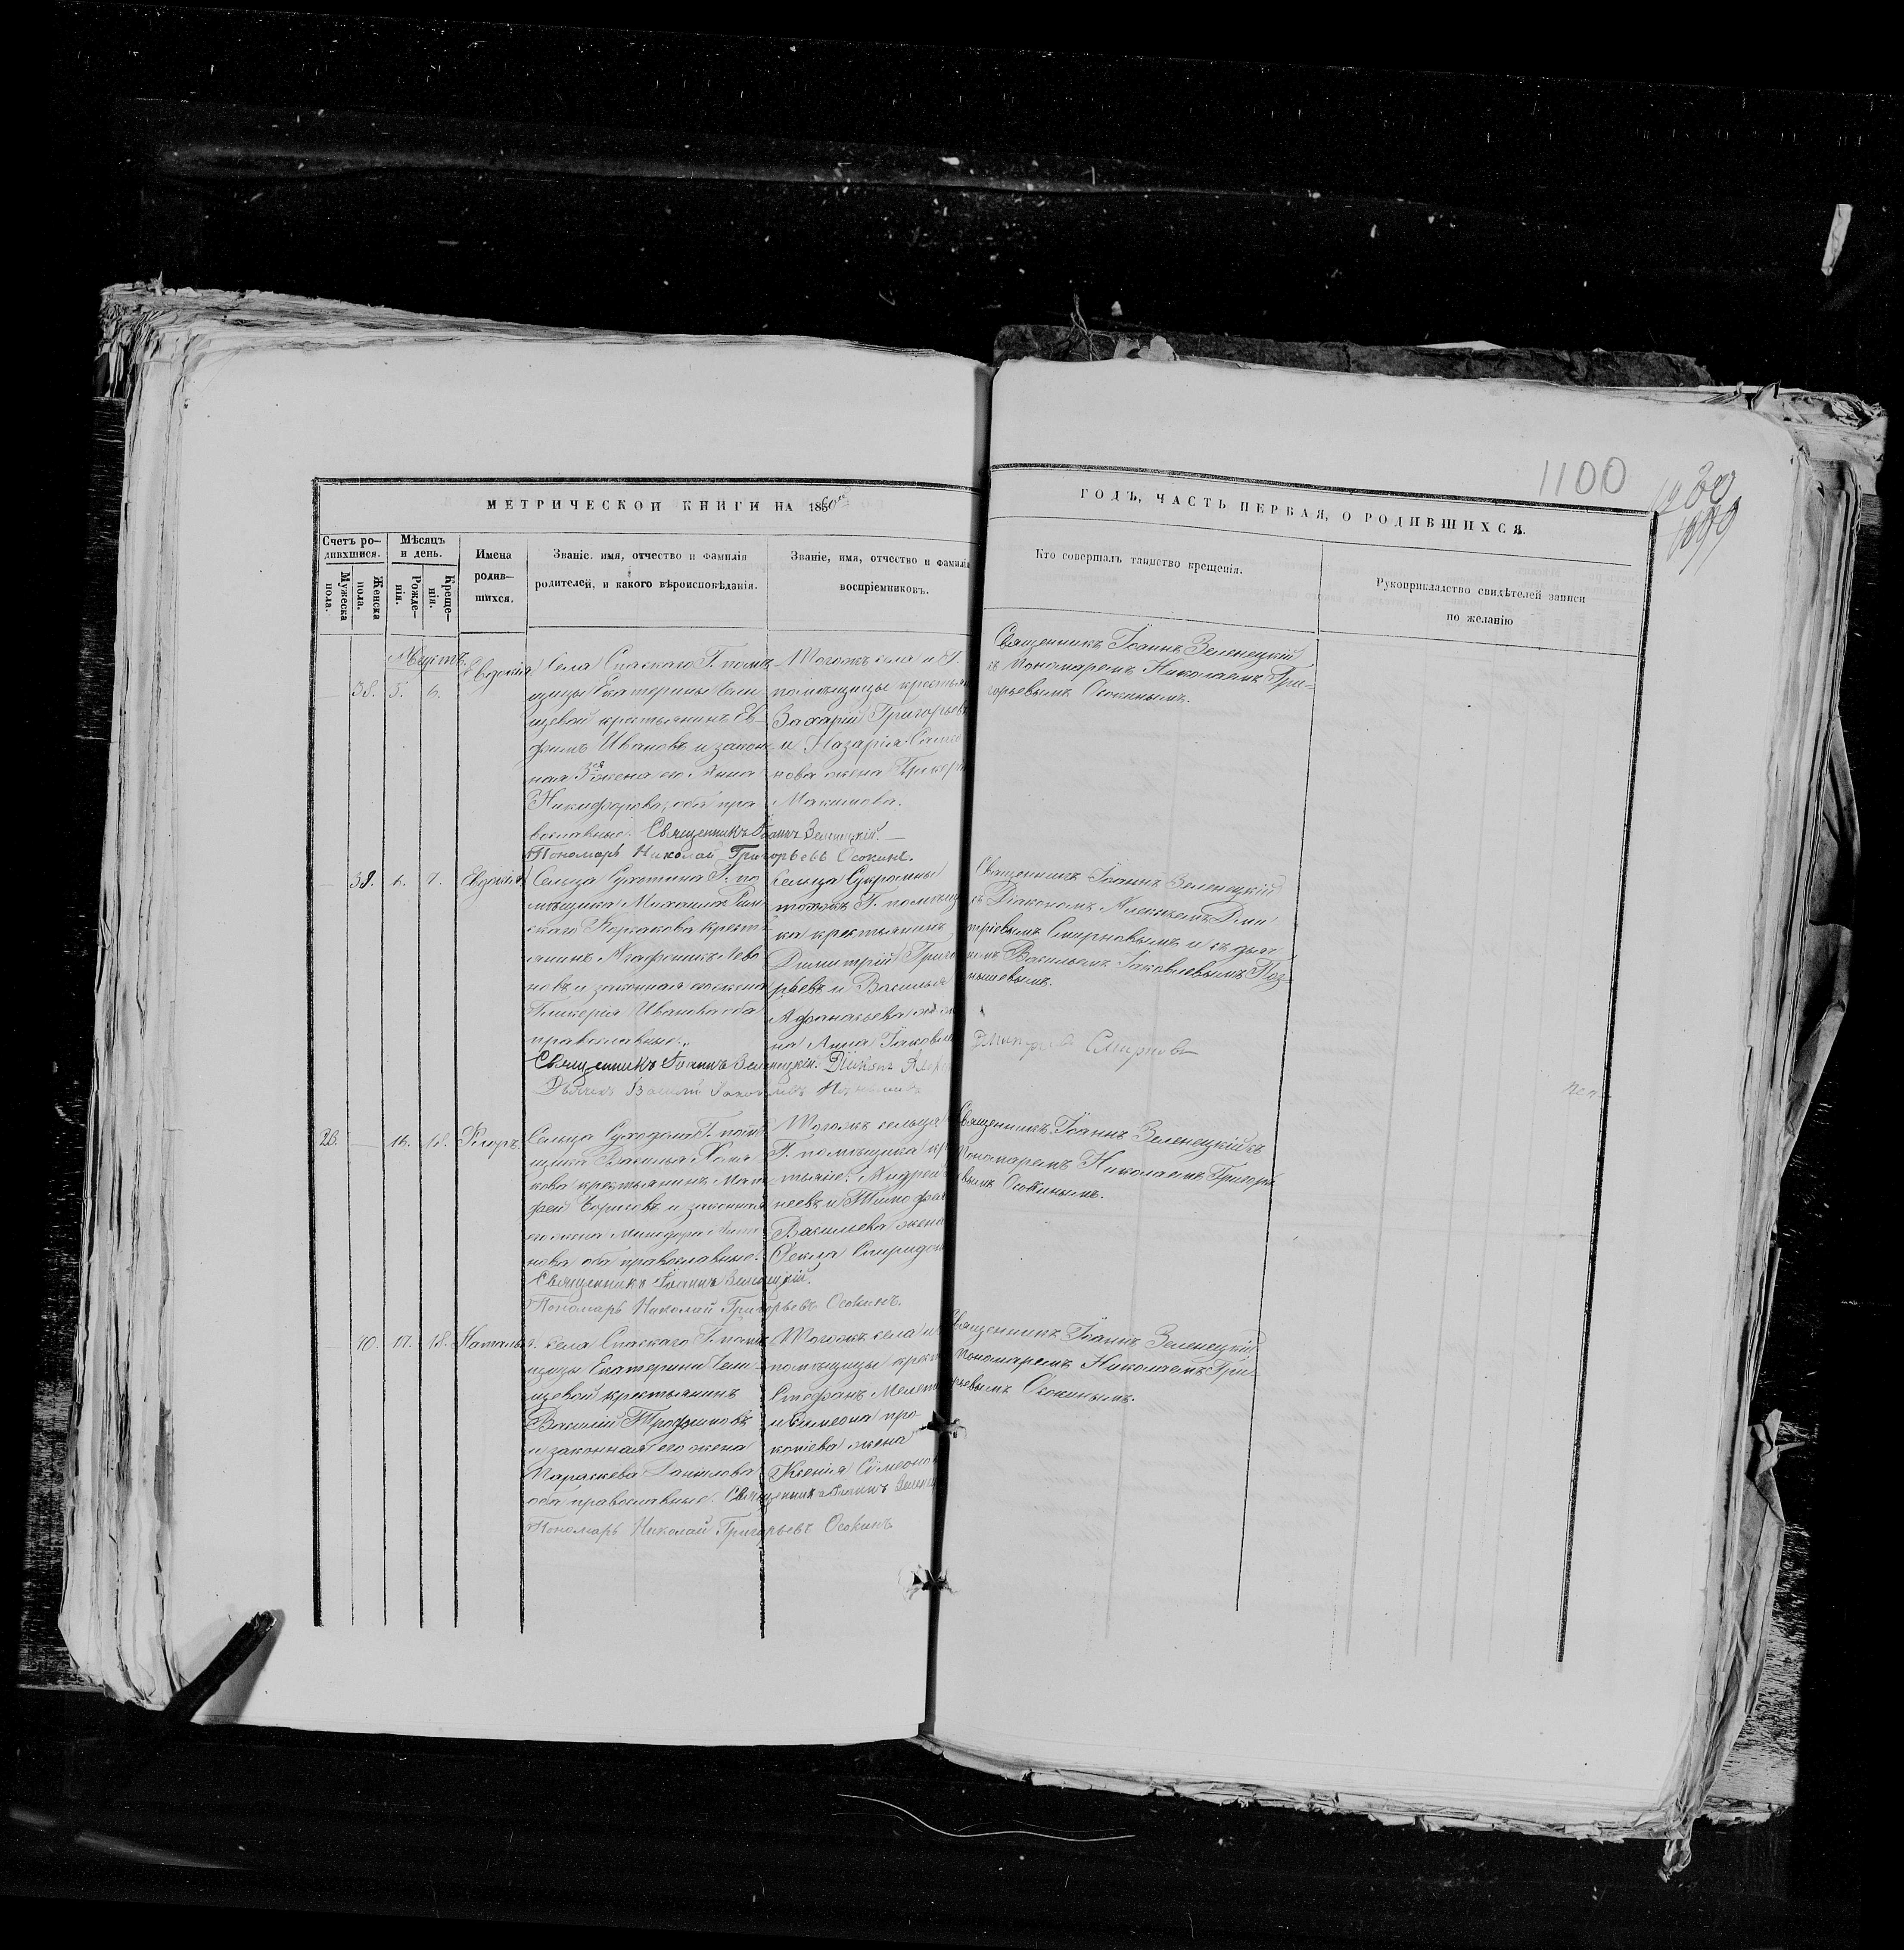 МЕТРИЧЕСКОЙ КНИГИ НА 1860й
ГОДЪ, ЧАСТЬ ПЕРВАЯ, О РОДИВШИХСЯ.
1100
1099
Счетъ ро-
дившхшися.
Мужеска
пола.
Женска
пола.
Мѣсяцъ
и день.
Рожде-
нія.
Креще-
нія.
Имена
родив-
шихся.
Званіе, имя, отчество и фамилія
родителей, и какого вѣроисповѣданія.
Званіе, имя, отчество и фамилія
воспріемниковъ.
Кто совершалъ таинство крещенія.
Рукоприкладство свидѣтелей записи
по желанію
Августъ.
38. 5. 6.
Евдокія
Села Спаскаго Г. помѣ
щицы Екатерины
щевой крестьянинъ Ев-
фимъ Ивановъ и закон
ная 3ая жена его Анна
Никифорова, оба пра
вославные. Священникъ Іоаннъ Зеленецкій.
Пономарь Николай Григорьевъ Осокинъ.
Тогожъ села и Г.
помѣщицы крестьян
Захарій Григорьевъ
и Назарія
нова жена Гликерія
Максимова.
Священникъ Іоаннъ Зеленецкій
съ Пономаремъ Николаемъ Гри-
горьевымъ Осокинымъ.
39. 6. 7.
Евдокія
Сельца Сухотина Г. по
мѣщика Михаила Рим
скаго Корсакова крест
янинъ Агафоникъ
новъ и законная его жена
Гликерія Иванова оба
православные.
Священникъ Іоаннъ Зеленецкій. Діаконъ
Дьячекъ Василій
Сельца
тогожъ Г. помѣщи
ка крестьянинъ
Димитрій Григо
рьевъ и Василья
Афанасьева же
на Анна Іаковле
Священникъ Іоаннъ Зеленецкій
съ Діакономъ Алексѣемъ Дми
тріевымъ Смирновымъ и съ дьяч
комъ Васильемъ Іаковлевымъ Поз-
нышевымъ.
Смирновъ
26. 16. 18.
Сельца Г. помѣ
щика Василья
кова крестьянинъ Мат
фей Борисовъ и законная
его жена
нова оба православные.
Священникъ Іоаннъ Зеленецкій.
Пономарь Николай Григорьевъ Осокинъ.
Тогожъ сельца
Г. помѣщика кре
стьяне: Андрей
неевъ и
Васильева жена
Ѳекла Спиридон
Священникъ Іоаннъ Зеленецкій съ
Пономаремъ Николаемъ Григорье
вымъ Осокинымъ.
40. 17. 18.
Наталья
Села Спаскаго Г. помѣ
щицы Екатерины
щевой крестьянинъ
Василій Трофимовъ
и законная его жена
Параскева Данилова
оба православные. Священникъ Іоаннъ Зеленец
Пономарь Николай Григорьевъ Осокинъ
Тогожъ села и
помѣщицы крест
Стефанъ
и Симеона про
копіева жена
Ксенія Симеоно
Священникъ Іоаннъ Зеленецкій
Пономаремъ Николаемъ Гри-
рьевымъ Осокинымъ.